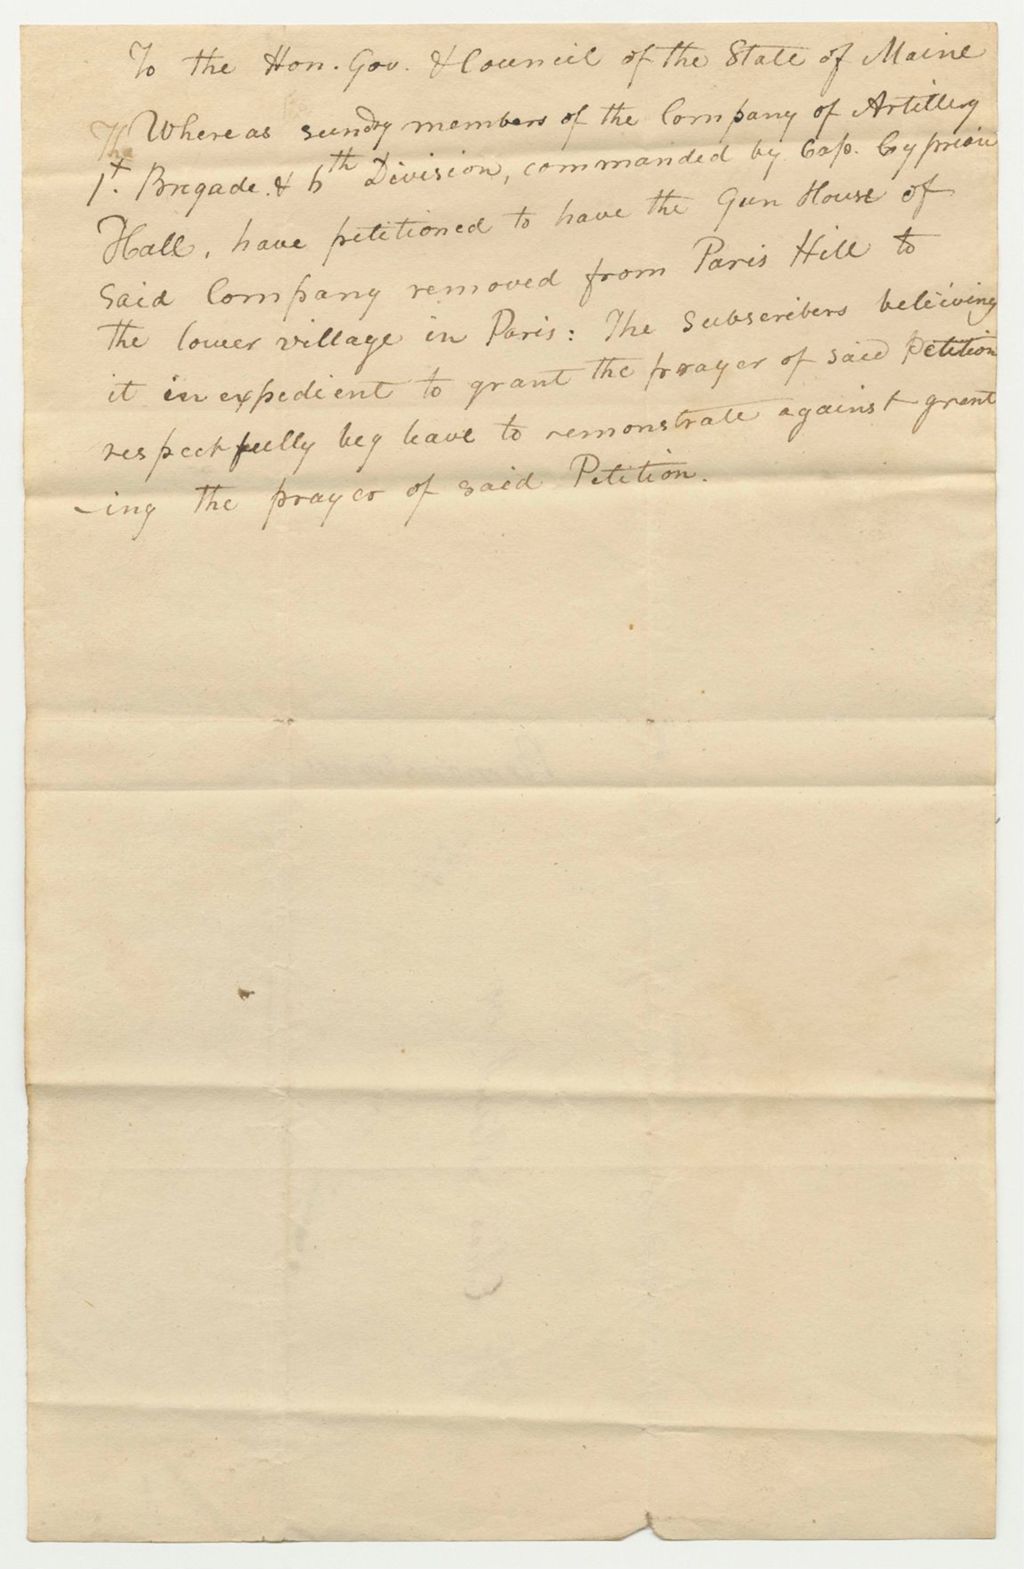 To the Hon. Gov. & Council of the State of Maine
Whereas sundry members of the Company of Artillery
1t. Brigade. & 6th Division, commanded by Cap. Cyprian
Hall, have petitioned to have the Gun House of
said Company removed from Paris Hill to
the lower village in Paris: The subscribers beleiving
it inexpedient to grant the prayer of said Petition
respectfully beg leave to remonstrate against grant
-ing the prayer of said Petition.